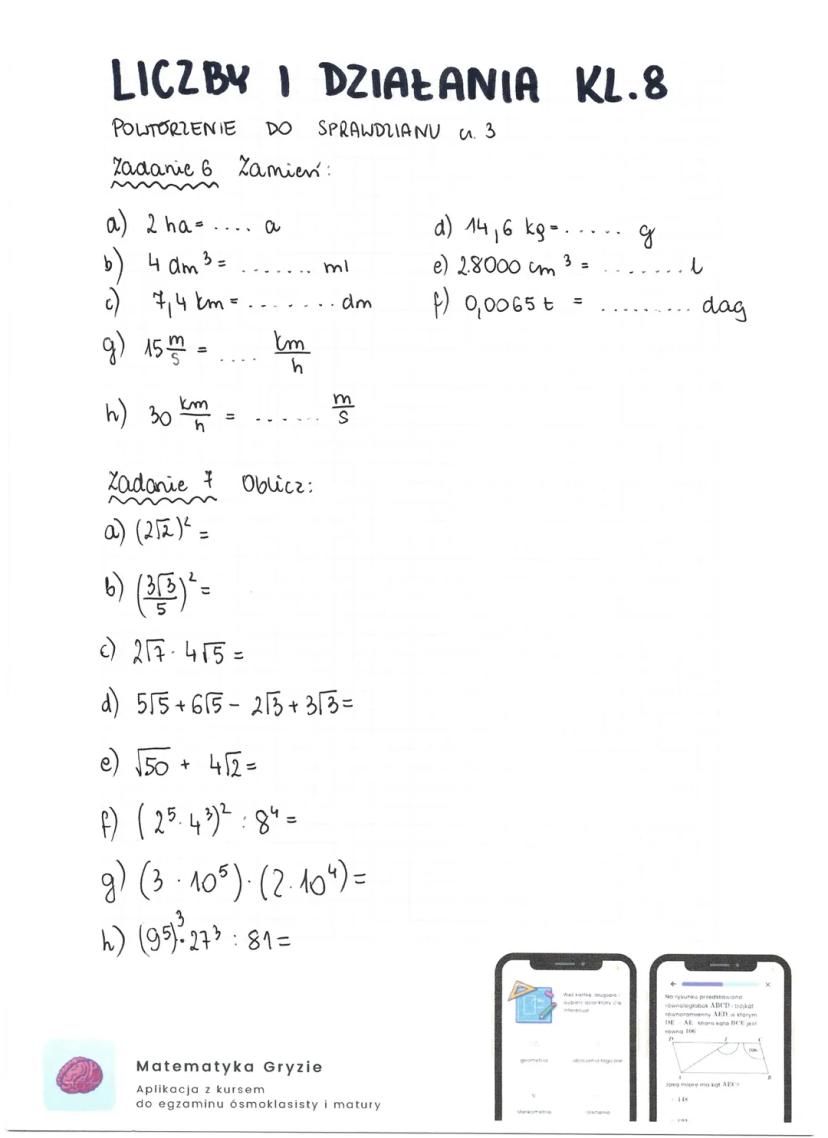 LICZBY I DZIAŁANIA KL.8
POWTÓRZENIE DO SPRAWDZIANU cz. 3
Zadanie 6 Zamień:
a) 2 ha = .... a
b) 4 dm³ = ....... ml
c) 7,4 km = ........ dm
d) 14,6 kg = ...... g
e) 28000 cm³ = ........ l
f) 0,0065 t = ......... dag
g) 15 m/s = .... km/h
h) 30 km/h = ...... m/s
Zadanie 7 Oblicz:
a) (2√2)² =
b) (3√3/5)² =
c) 2√7 · 4√5 =
d) 5√5 + 6√5 - 2√3 + 3√3 =
e) √50 + 4√2 =
f) (2⁵·4³)² : 8⁴ =
g) (3 · 10⁵) · (2·10⁴) =
h) (9⁵)³·27³ : 81 =
Matematyka Gryzie
Aplikacja z kursem
do egzaminu ósmoklasisty i matury
geometria
Na rysunku przedstawiono
równoległobok ABCD i trójkąt
równoramienny AED, w którym
DE = AE. Miara kąta BCE jest
równa 106
D E C
106
A B
Jaką miarę ma kąt AEC?
148